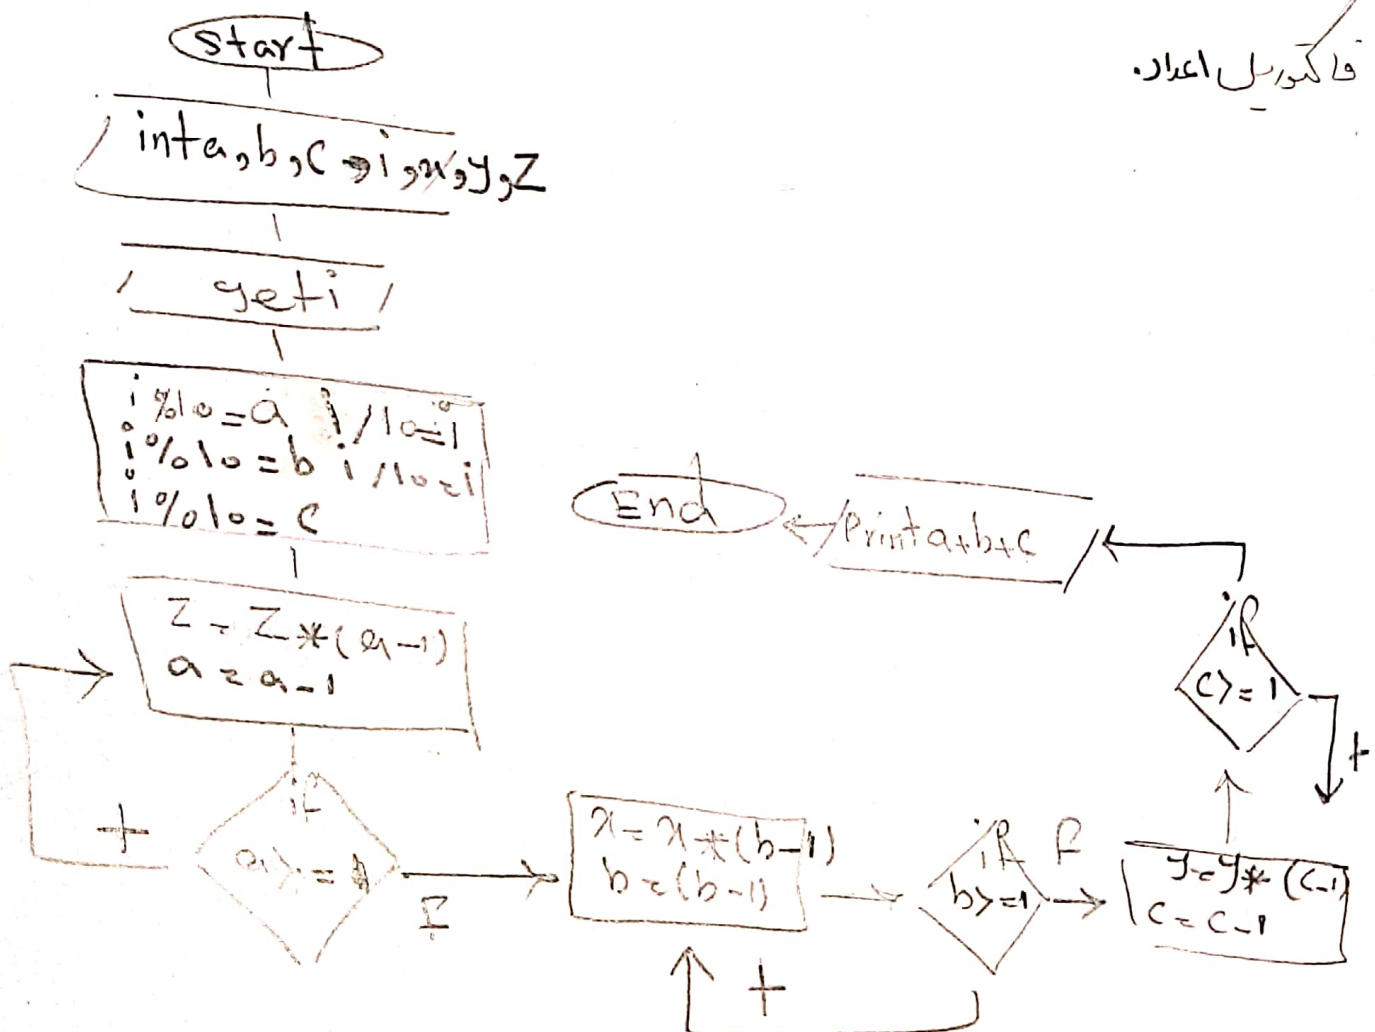 فاکتوریل اعداد.
start
int a,b,c,i,x,y,z
get i
i%10=a i/10=i
i%10=b i/10=i
i%10=c
z=z*(a-1)
a=a-1
if
a>=1
+
F
x=x*(b-1)
b=(b-1)
if
b>=1
+
F
y=y*(c-1)
c=c-1
if
c>=1
+
Print a+b+c
End